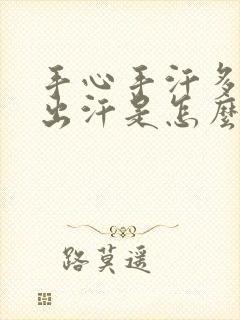 手心手汗多
出汗是怎麼
路莫遥